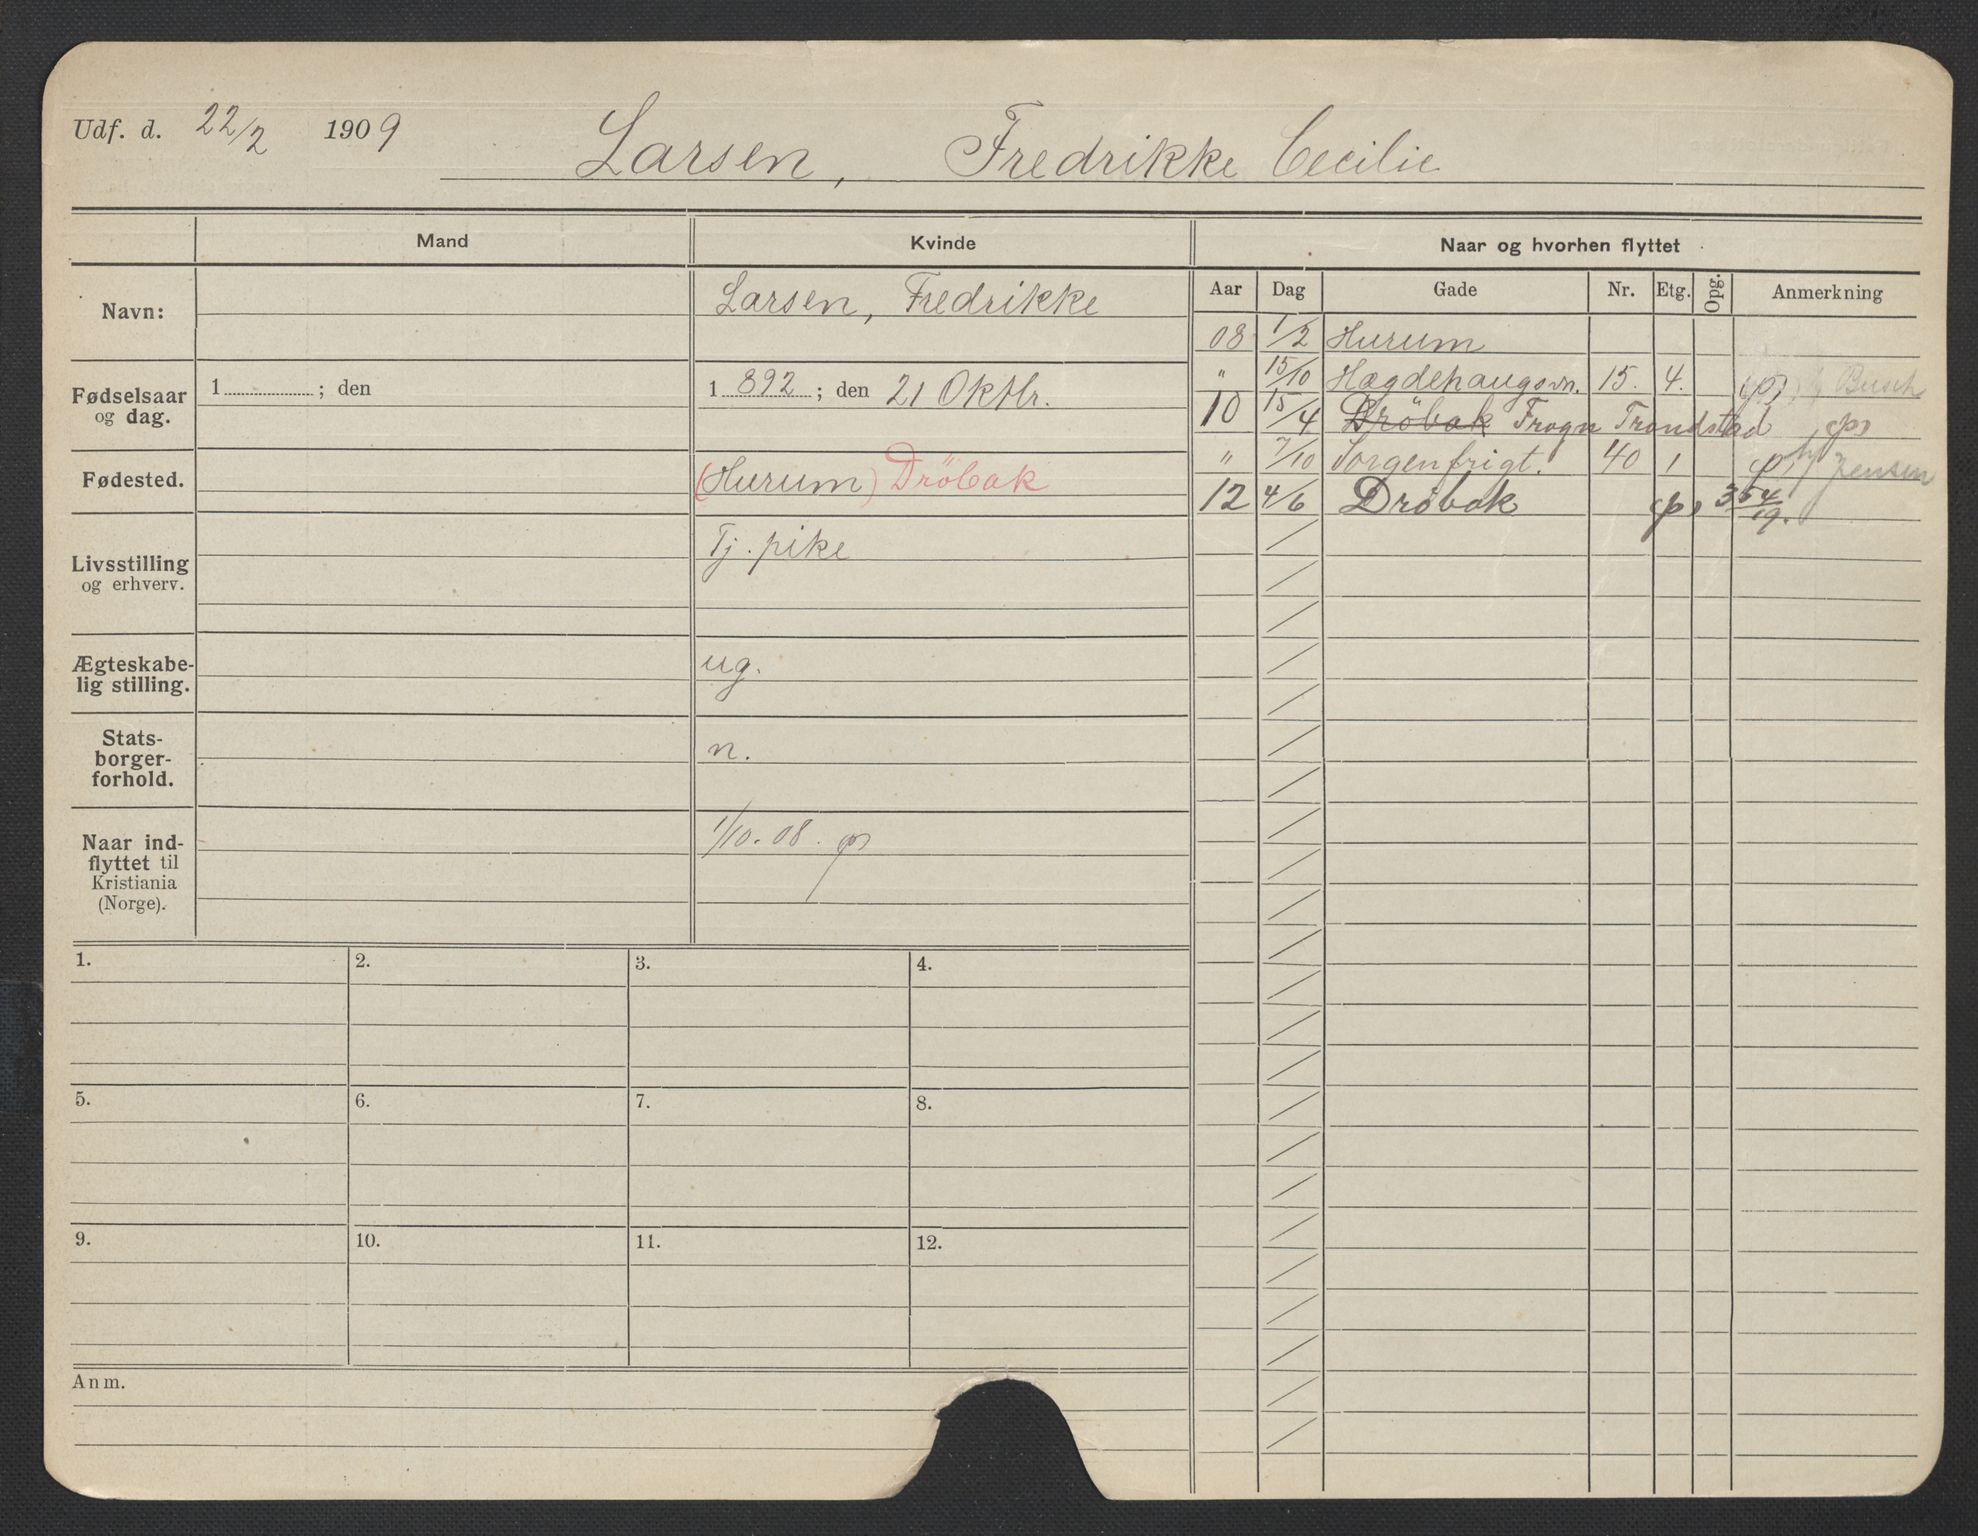 Udf. d. 22/2 1909 Larsen, Fredrikke Cecilie
Mand Kvinde Naar og hvorhen flyttet
Navn: Larsen, Fredrikke
Fødselsaar og dag. 1 ; den 1 892 ; den 21 Oktbr.
Fødested. (Hurum) Dröbak
Livsstilling og erhverv. Tj. pike
Ægteskabe-
lig stilling. ug.
Stats-
borger-
forhold. n.
Naar ind-
flyttet til
Kristiania
(Norge). 1/10. 08. ps
Aar Dag Gade Nr. Etg. Opg. Anmerkning
08 1/2 Hurum
" 15/10 Hægdehaugsvn. 15. 4. Busch
10 15/4 Dröbak Frogn Trondstad ps
" 7/10 Sorgenfrigt. 40 1 Jensen
12 4/6 Dröbak ps 354/19.
1. 2. 3. 4.
5. 6. 7. 8.
9. 10. 11. 12.
Anm.